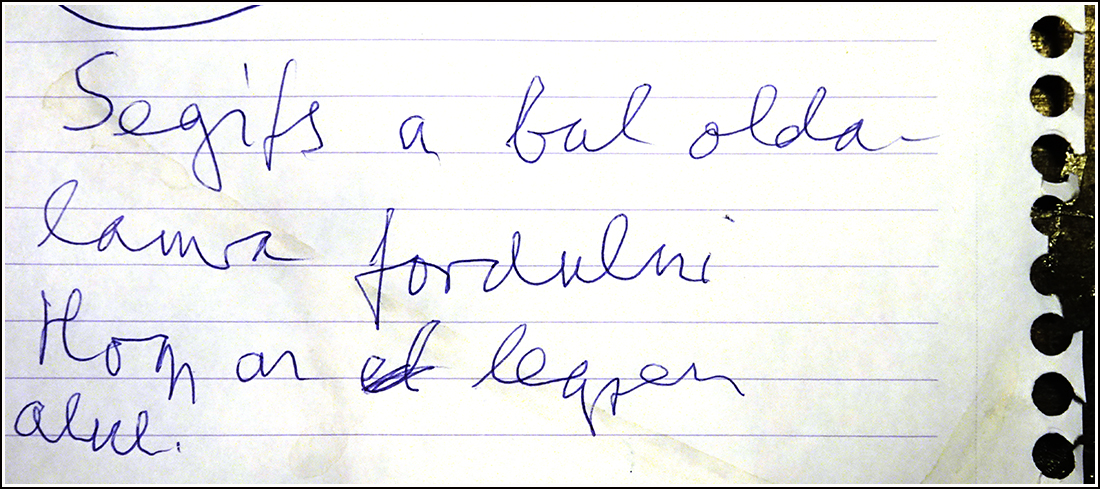 Segits a bal olda-
lamra fordulni
Hogy az legyen
alul.